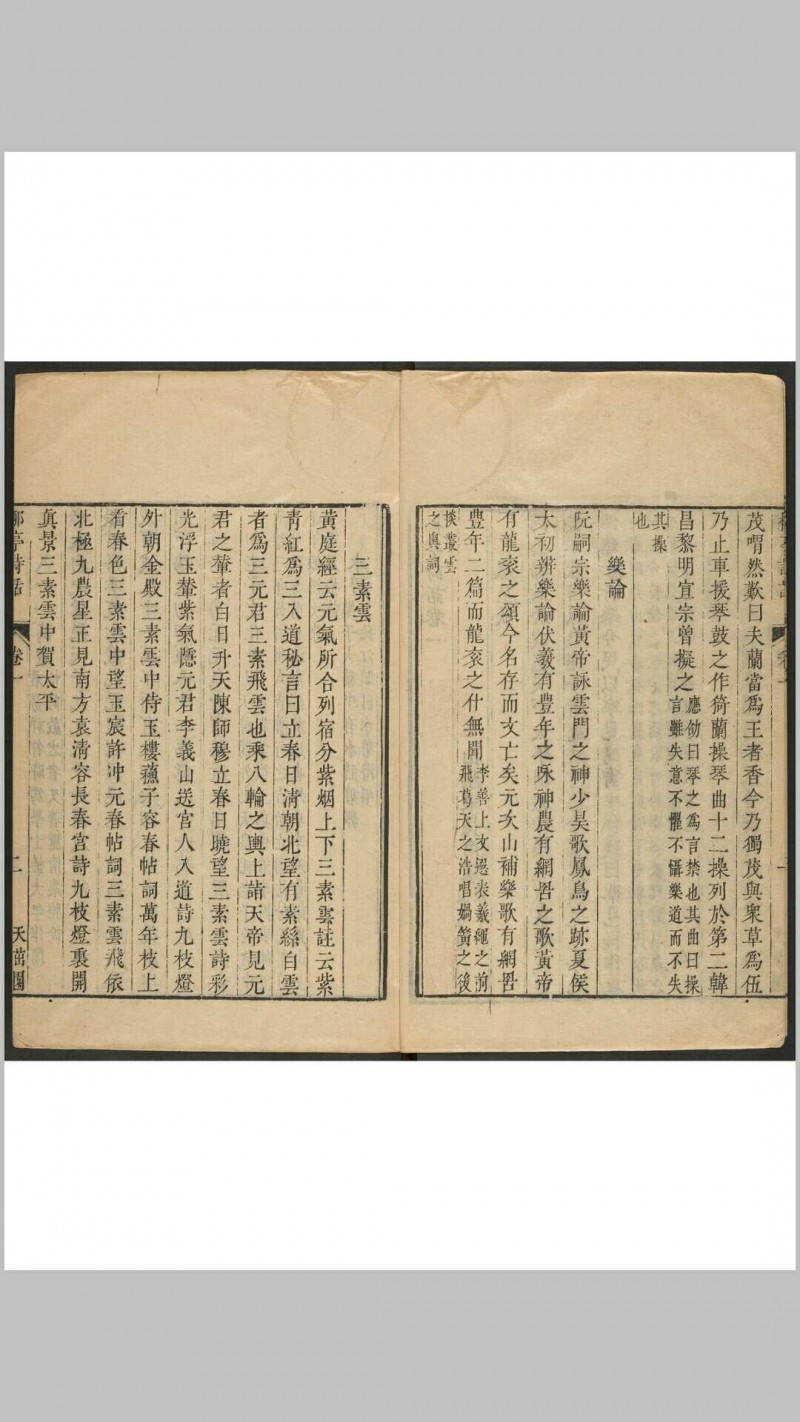 茂喟然歎曰夫蘭當爲王者香今乃獨茂與衆草爲伍
乃止車援琴鼓之作猗蘭操琴曲十二操列於第二韓
昌黎明宣宗曾擬之應劭曰琴之爲言禁也其曲曰操
言雖失意不懼不懾樂道而不失
其操
也
樂論
阮嗣宗樂論黃帝詠雲門之神少昊歌鳳鳥之跡夏侯
太初辨樂論伏羲有豊年之咏神農有網罟之歌黃帝
有龍衮之頌今名存而文亡矣元次山補樂歌有網罟
豊年二篇而龍衮之什無聞李善上文選表羲繩之前
飛葛天之浩唱媧簧之後
掞叢雲
之奧詞
三素雲
黃庭經云元氣所合列宿分紫烟上下三素雲註云紫
靑紅爲三入道秘言曰立春日淸朝北望有素絲白雲
者爲三元君三素飛雲也乘八輪之輿上詣天帝見元
君之輦者白日升天陳師穆立春日曉望三素雲詩彩
光浮玉輦紫氣隱元君李義山送宮人入道詩九枝燈
外朝金殿三素雲中侍玉樓蘊子容春帖詞萬年枝上
看春色三素雲中望玉宸許冲元春帖詞三素雲飛依
北極九農星正見南方袁淸容長春宮詩九枝燈裏開
眞景三素雲中賀太平
柳亭詩話
卷一
二
天茁園